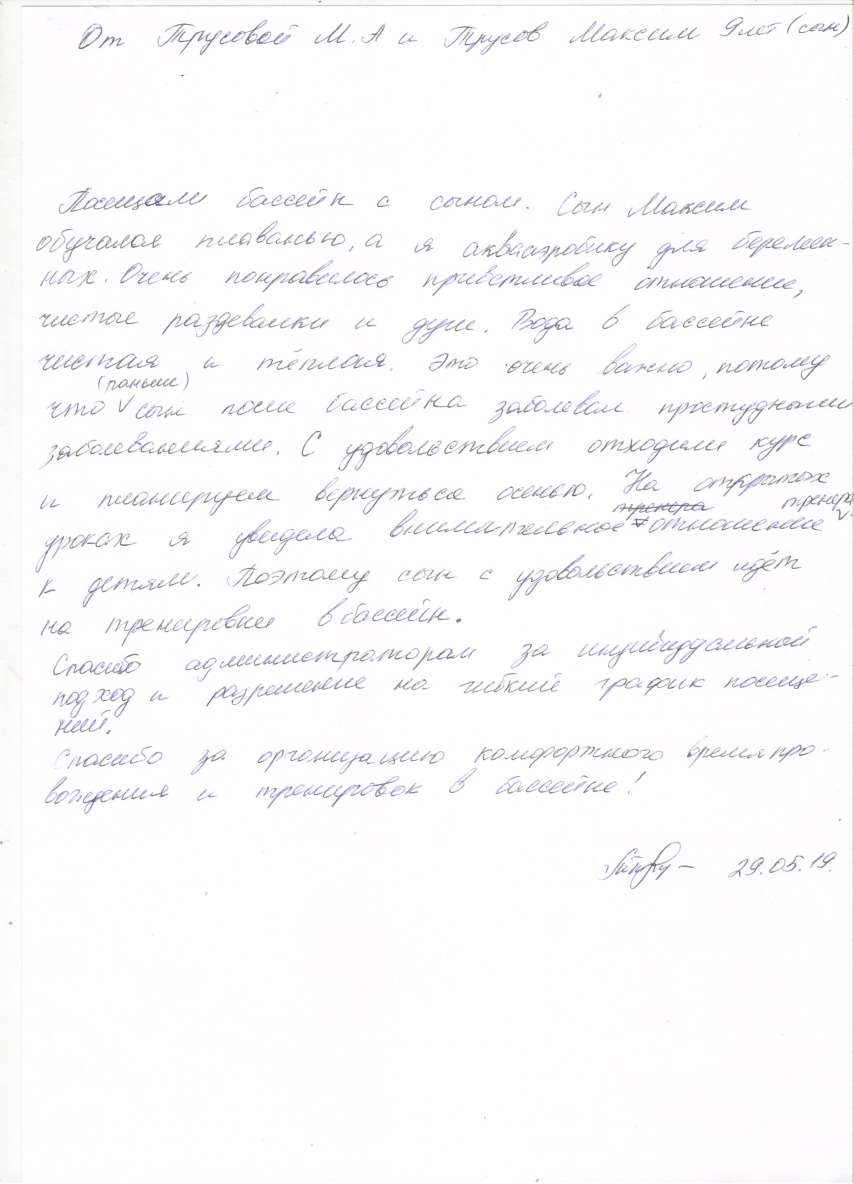 От Трусовой М.А и Трусов Максим 9 лет (сын)
Посещали бассейн с сыном. Сын Максим
обучался плаванью, а я аквааэробику для беремен-
ных. Очень понравилось приветливое отношение,
чистые раздевалки и душ. Вода в бассейне
чистая и тёплая. Это очень важно, потому
(раньше)
что сын после бассейна заболевал простудными
заболеваниями. С удовольствием отходили курс
и планируем вернуться осенью. На открытых
тренера тренера
уроках я увидела внимательное отношение
к детям. Поэтому сын с удовольствием идёт
на тренировки в бассейн.
Спасибо администраторам за индивидуальной
подход и разрешение на гибкий график посеще-
ний.
Спасибо за организацию комфортного времяпро-
вождения и тренировок в бассейне!
29.05.19.